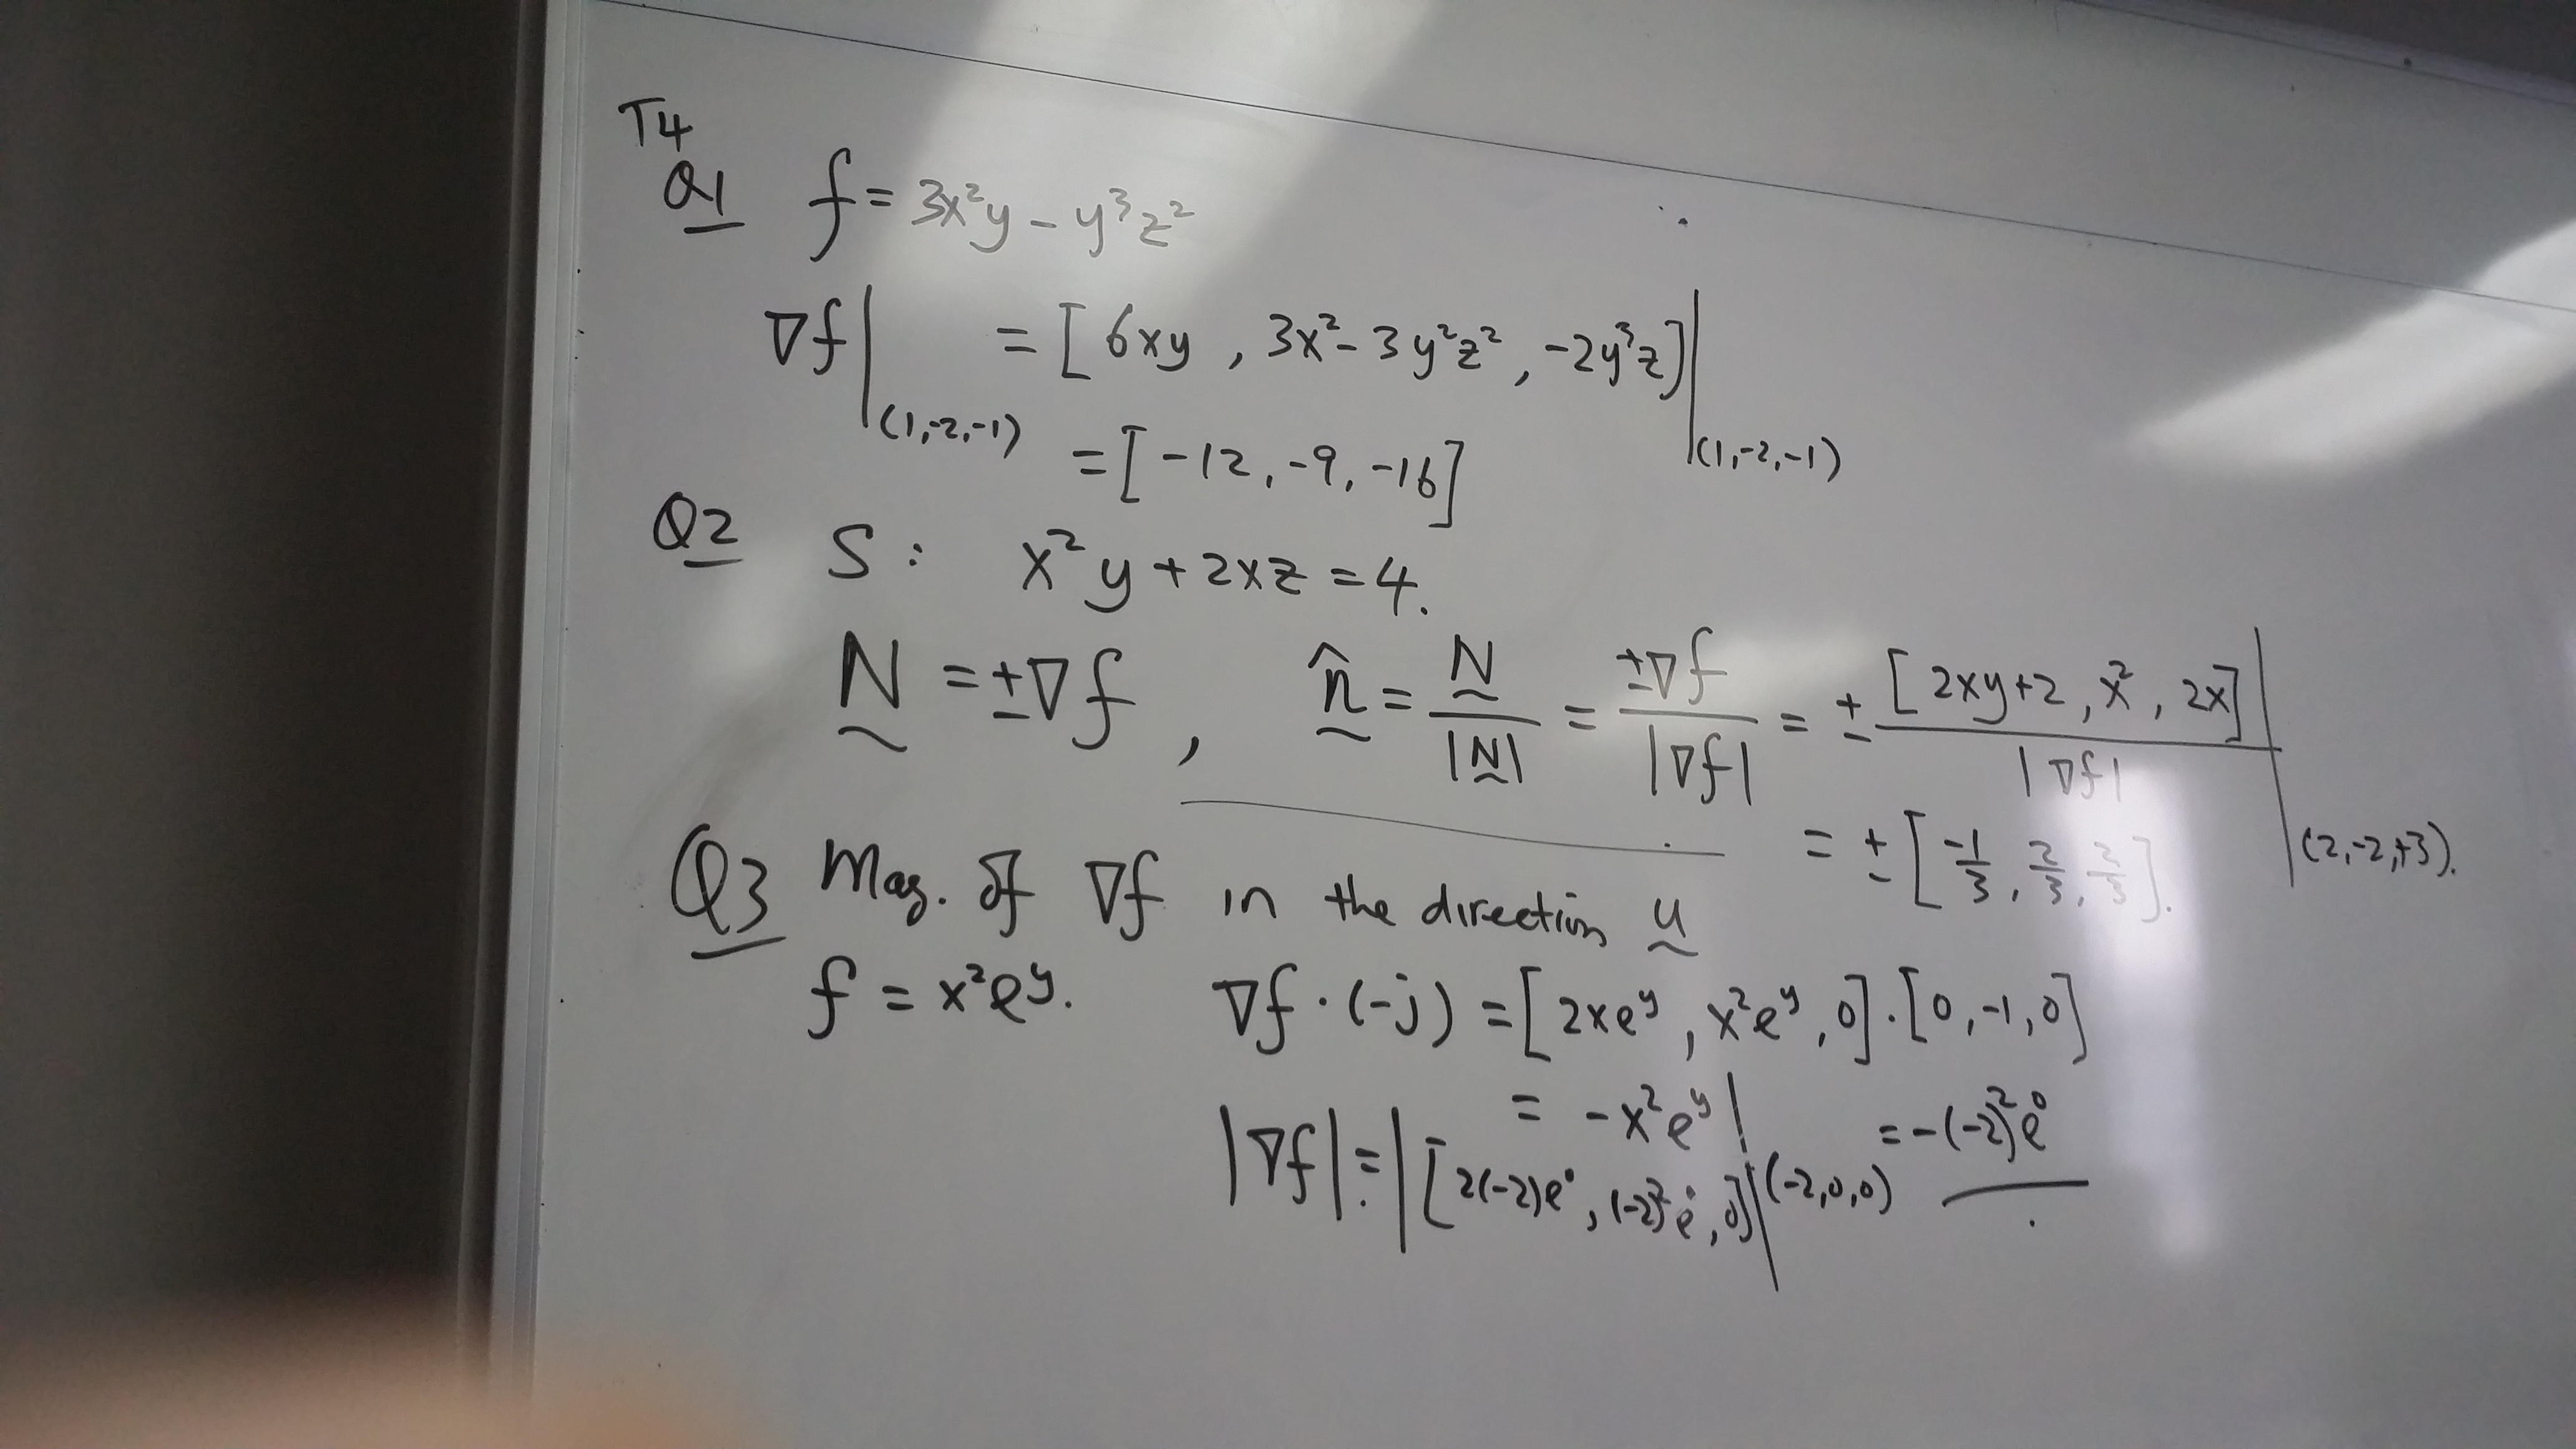 T4
Q1 f = 3x²y − y³z²
∇f|(1,-2,-1) = [6xy, 3x² − 3y²z², −2y³z]|(1,-2,-1)
= [−12, −9, −16]
Q2 S: x²y + 2xz = 4.
N = ±∇f, n̂ = N/|N| = ±∇f/|∇f| = ± [2xy+2, x², 2x]/|∇f| |(2,-2,+3).
= ± [−1/3, 2/3, 2/3].
Q3 Mag. of ∇f in the direction u
f = x²eʸ. ∇f · (−j) = [2xeʸ, x²eʸ, 0] · [0, −1, 0]
= −x²eʸ|(-2,0,0) = −(−2)²e⁰
|∇f| = |[2(−2)e⁰, (−2)²e⁰, 0]|